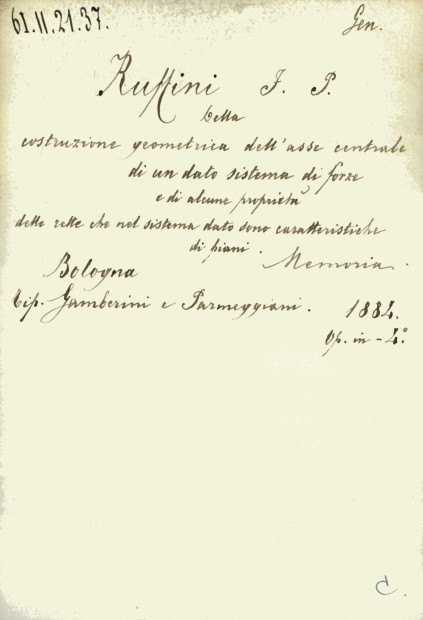 61.II.21.37.
Gen.
Ruffini F. P.
Della
costruzione geometrica dell'asse centrale
di un dato sistema di forze
e di alcune proprietà
delle rette che nel sistema dato sono caratteristiche
di piani. Memoria.
Bologna
Tip. Gamberini e Parmeggiani. 1884.
Op. in-4.°
C.